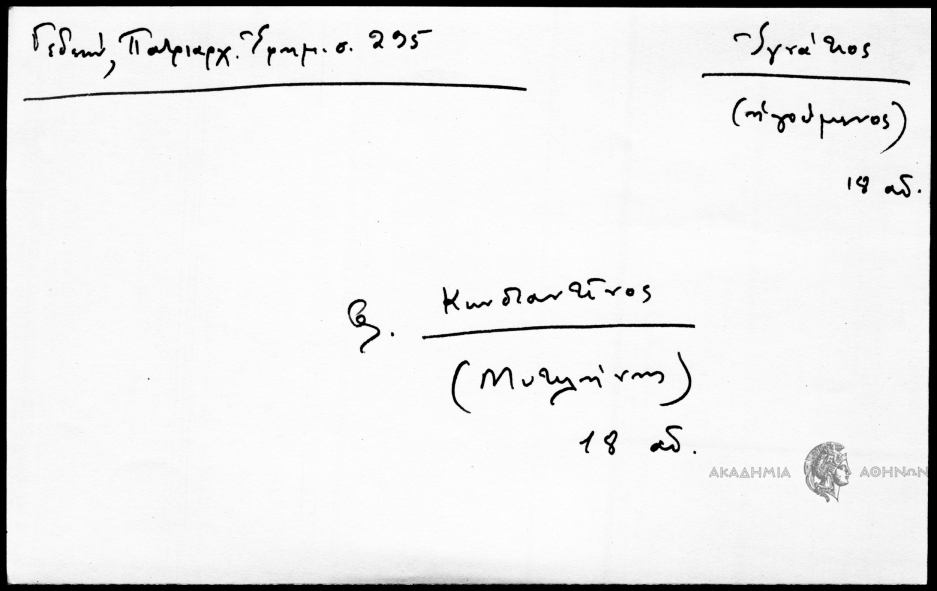 Γεδεών, Πατριαρχ. Ἐφημ. σ. 295
Ἰγνάτιος
(ἡγούμενος)
18 αἰ.
βλ. Κωνσταντῖνος
(Μυτιλήνης)
18 αἰ.
ΑΚΑΔΗΜΙΑ ΑΘΗΝΩΝ